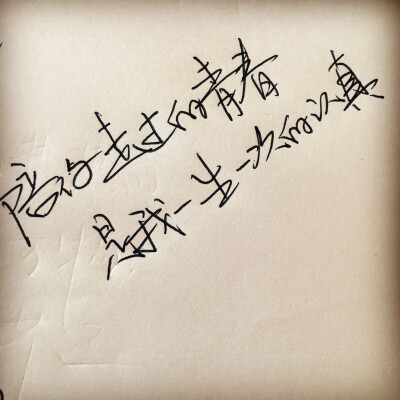 陪你走过的青春
是我一生一次的认真